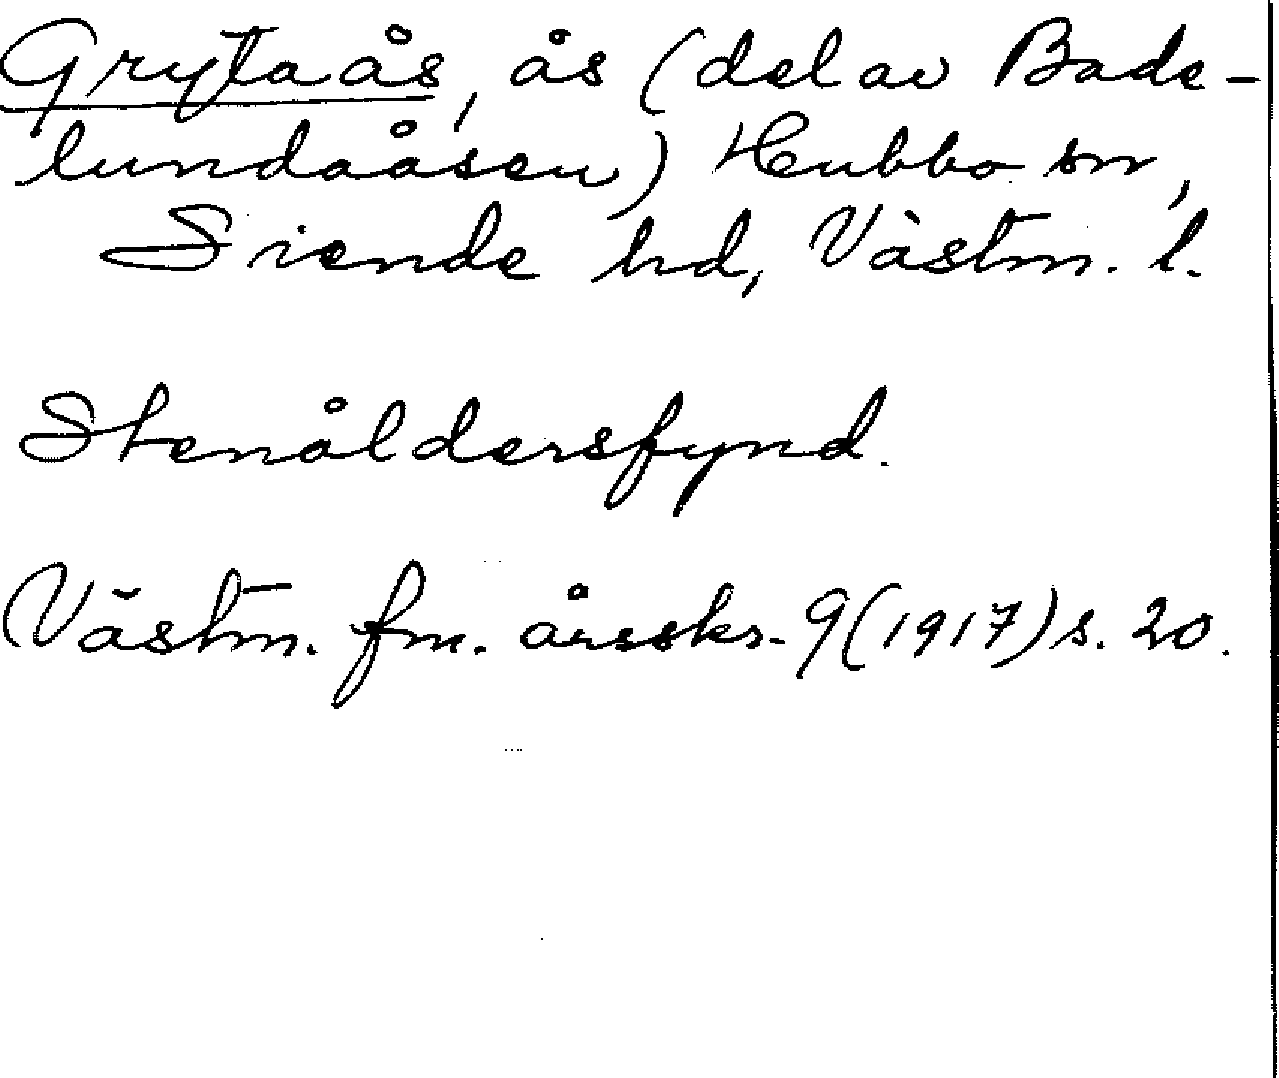 Grytaås, ås (del av Bade-
lundaåsen) Hubbo sn,
Siende hd, Västm. l.
Stenåldersfynd.
Västm. fm. årsskr. 9 (1917) s. 20.